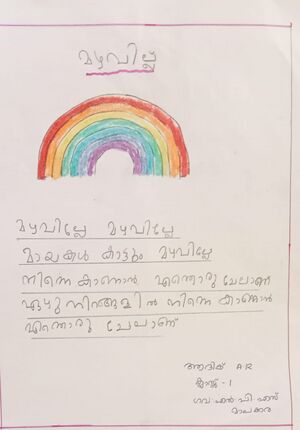 മഴവില്ല്
മഴവില്ലേ മഴവില്ലേ
മായകൾ കാട്ടും മഴവില്ലേ
നിന്നെ കാണാൻ എന്തൊരു ചേലാണ്
ഏഴു നിറങ്ങളിൽ നിന്നെ കാണാൻ
എന്തൊരു ചേലാണ്
ആദിഷ് A.R
ക്ലാസ്സ് - 1
ഗവ.എൽ.പി.എസ്
മാപകാര